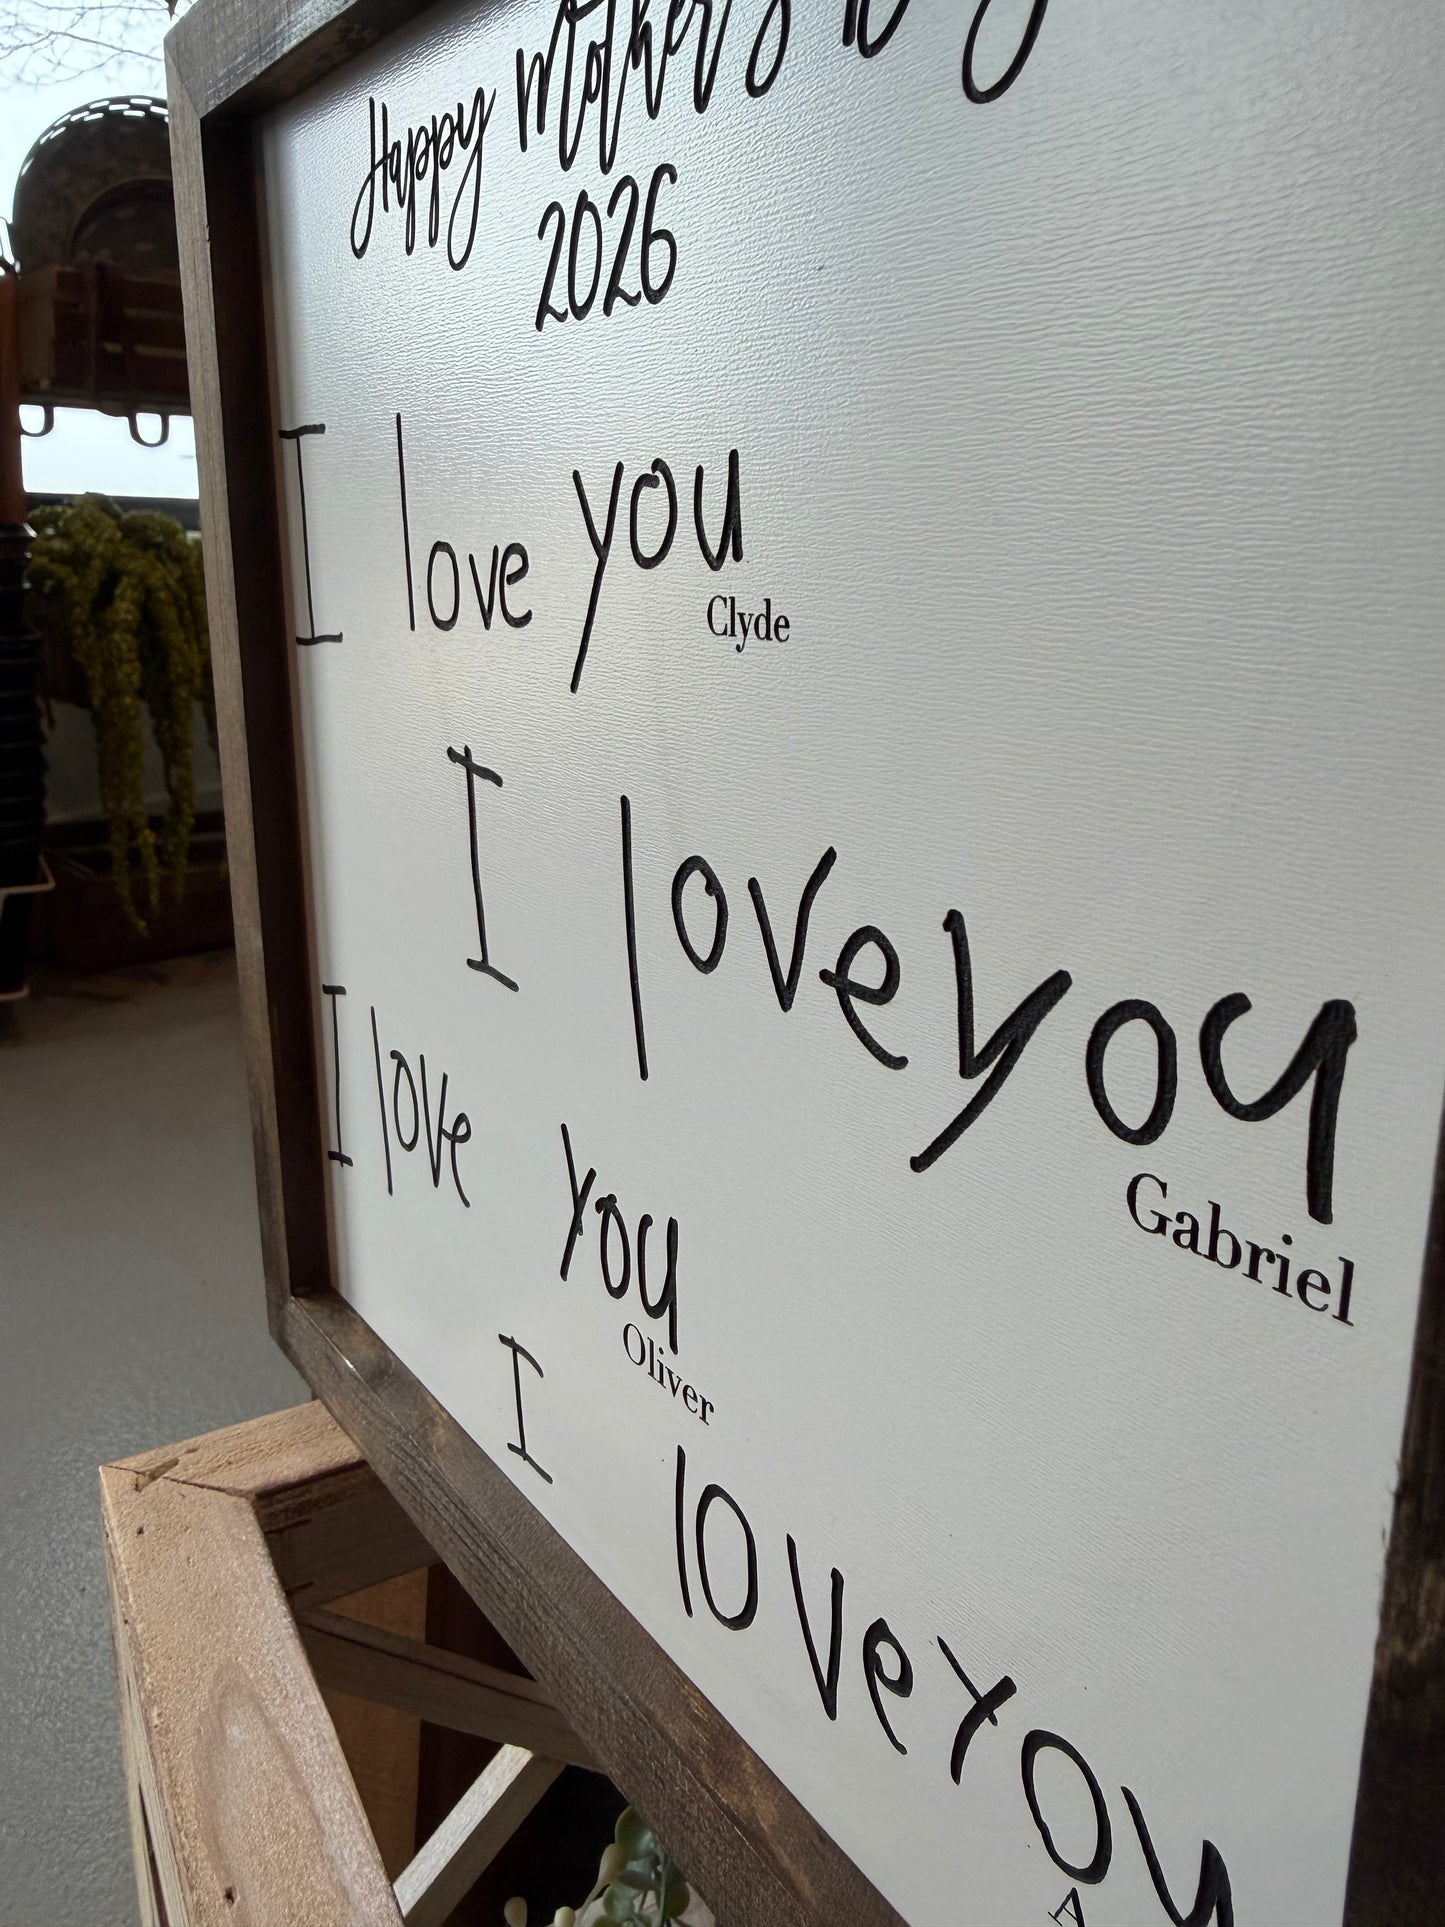 Happy Mother's Day
2026
I love you
Clyde
I love you
Gabriel
I love you
Oliver
I love you